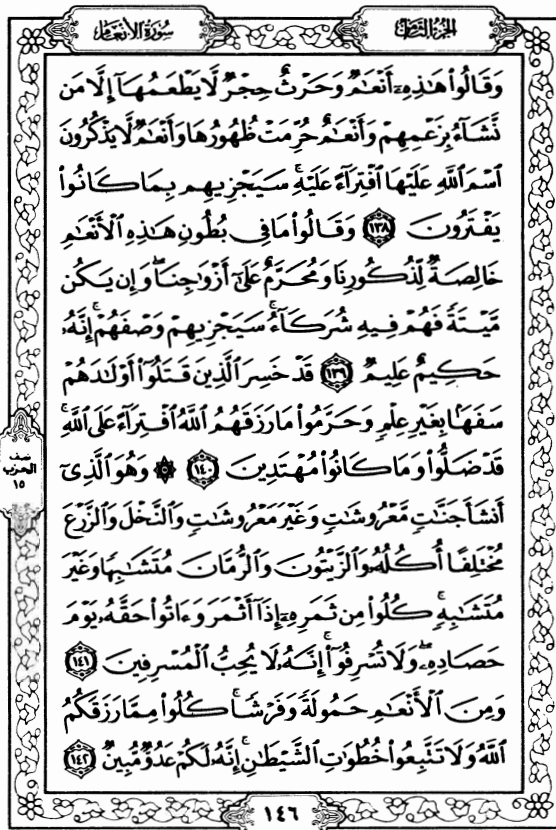 سُورَةُ الأَنْعَام
الجُزْءُ الثَّامِنُ
وَقَالُوا۟ هَـٰذِهِۦٓ أَنْعَـٰمٌ وَحَرْثٌ حِجْرٌ لَّا يَطْعَمُهَآ إِلَّا مَن
نَّشَآءُ بِزَعْمِهِمْ وَأَنْعَـٰمٌ حُرِّمَتْ ظُهُورُهَا وَأَنْعَـٰمٌ لَّا يَذْكُرُونَ
ٱسْمَ ٱللَّهِ عَلَيْهَا ٱفْتِرَآءً عَلَيْهِ ۚ سَيَجْزِيهِم بِمَا كَانُوا۟
يَفْتَرُونَ ١٣٨ وَقَالُوا۟ مَا فِى بُطُونِ هَـٰذِهِ ٱلْأَنْعَـٰمِ
خَالِصَةٌ لِّذُكُورِنَا وَمُحَرَّمٌ عَلَىٰٓ أَزْوَٰجِنَا ۖ وَإِن يَكُن
مَّيْتَةً فَهُمْ فِيهِ شُرَكَآءُ ۚ سَيَجْزِيهِمْ وَصْفَهُمْ ۚ إِنَّهُۥ
حَكِيمٌ عَلِيمٌ ١٣٩ قَدْ خَسِرَ ٱلَّذِينَ قَتَلُوٓا۟ أَوْلَـٰدَهُمْ
سَفَهًۢا بِغَيْرِ عِلْمٍ وَحَرَّمُوا۟ مَا رَزَقَهُمُ ٱللَّهُ ٱفْتِرَآءً عَلَى ٱللَّهِ ۚ
قَدْ ضَلُّوا۟ وَمَا كَانُوا۟ مُهْتَدِينَ ١٤٠ ۞ وَهُوَ ٱلَّذِىٓ
أَنشَأَ جَنَّـٰتٍ مَّعْرُوشَـٰتٍ وَغَيْرَ مَعْرُوشَـٰتٍ وَٱلنَّخْلَ وَٱلزَّرْعَ
مُخْتَلِفًا أُكُلُهُۥ وَٱلزَّيْتُونَ وَٱلرُّمَّانَ مُتَشَـٰبِهًا وَغَيْرَ
مُتَشَـٰبِهٍ ۚ كُلُوا۟ مِن ثَمَرِهِۦٓ إِذَآ أَثْمَرَ وَءَاتُوا۟ حَقَّهُۥ يَوْمَ
حَصَادِهِۦ ۖ وَلَا تُسْرِفُوٓا۟ ۚ إِنَّهُۥ لَا يُحِبُّ ٱلْمُسْرِفِينَ ١٤١
وَمِنَ ٱلْأَنْعَـٰمِ حَمُولَةً وَفَرْشًا ۚ كُلُوا۟ مِمَّا رَزَقَكُمُ
ٱللَّهُ وَلَا تَتَّبِعُوا۟ خُطُوَٰتِ ٱلشَّيْطَـٰنِ ۚ إِنَّهُۥ لَكُمْ عَدُوٌّ مُّبِينٌ ١٤٢
نصف
الحزب
١٥
١٤٦